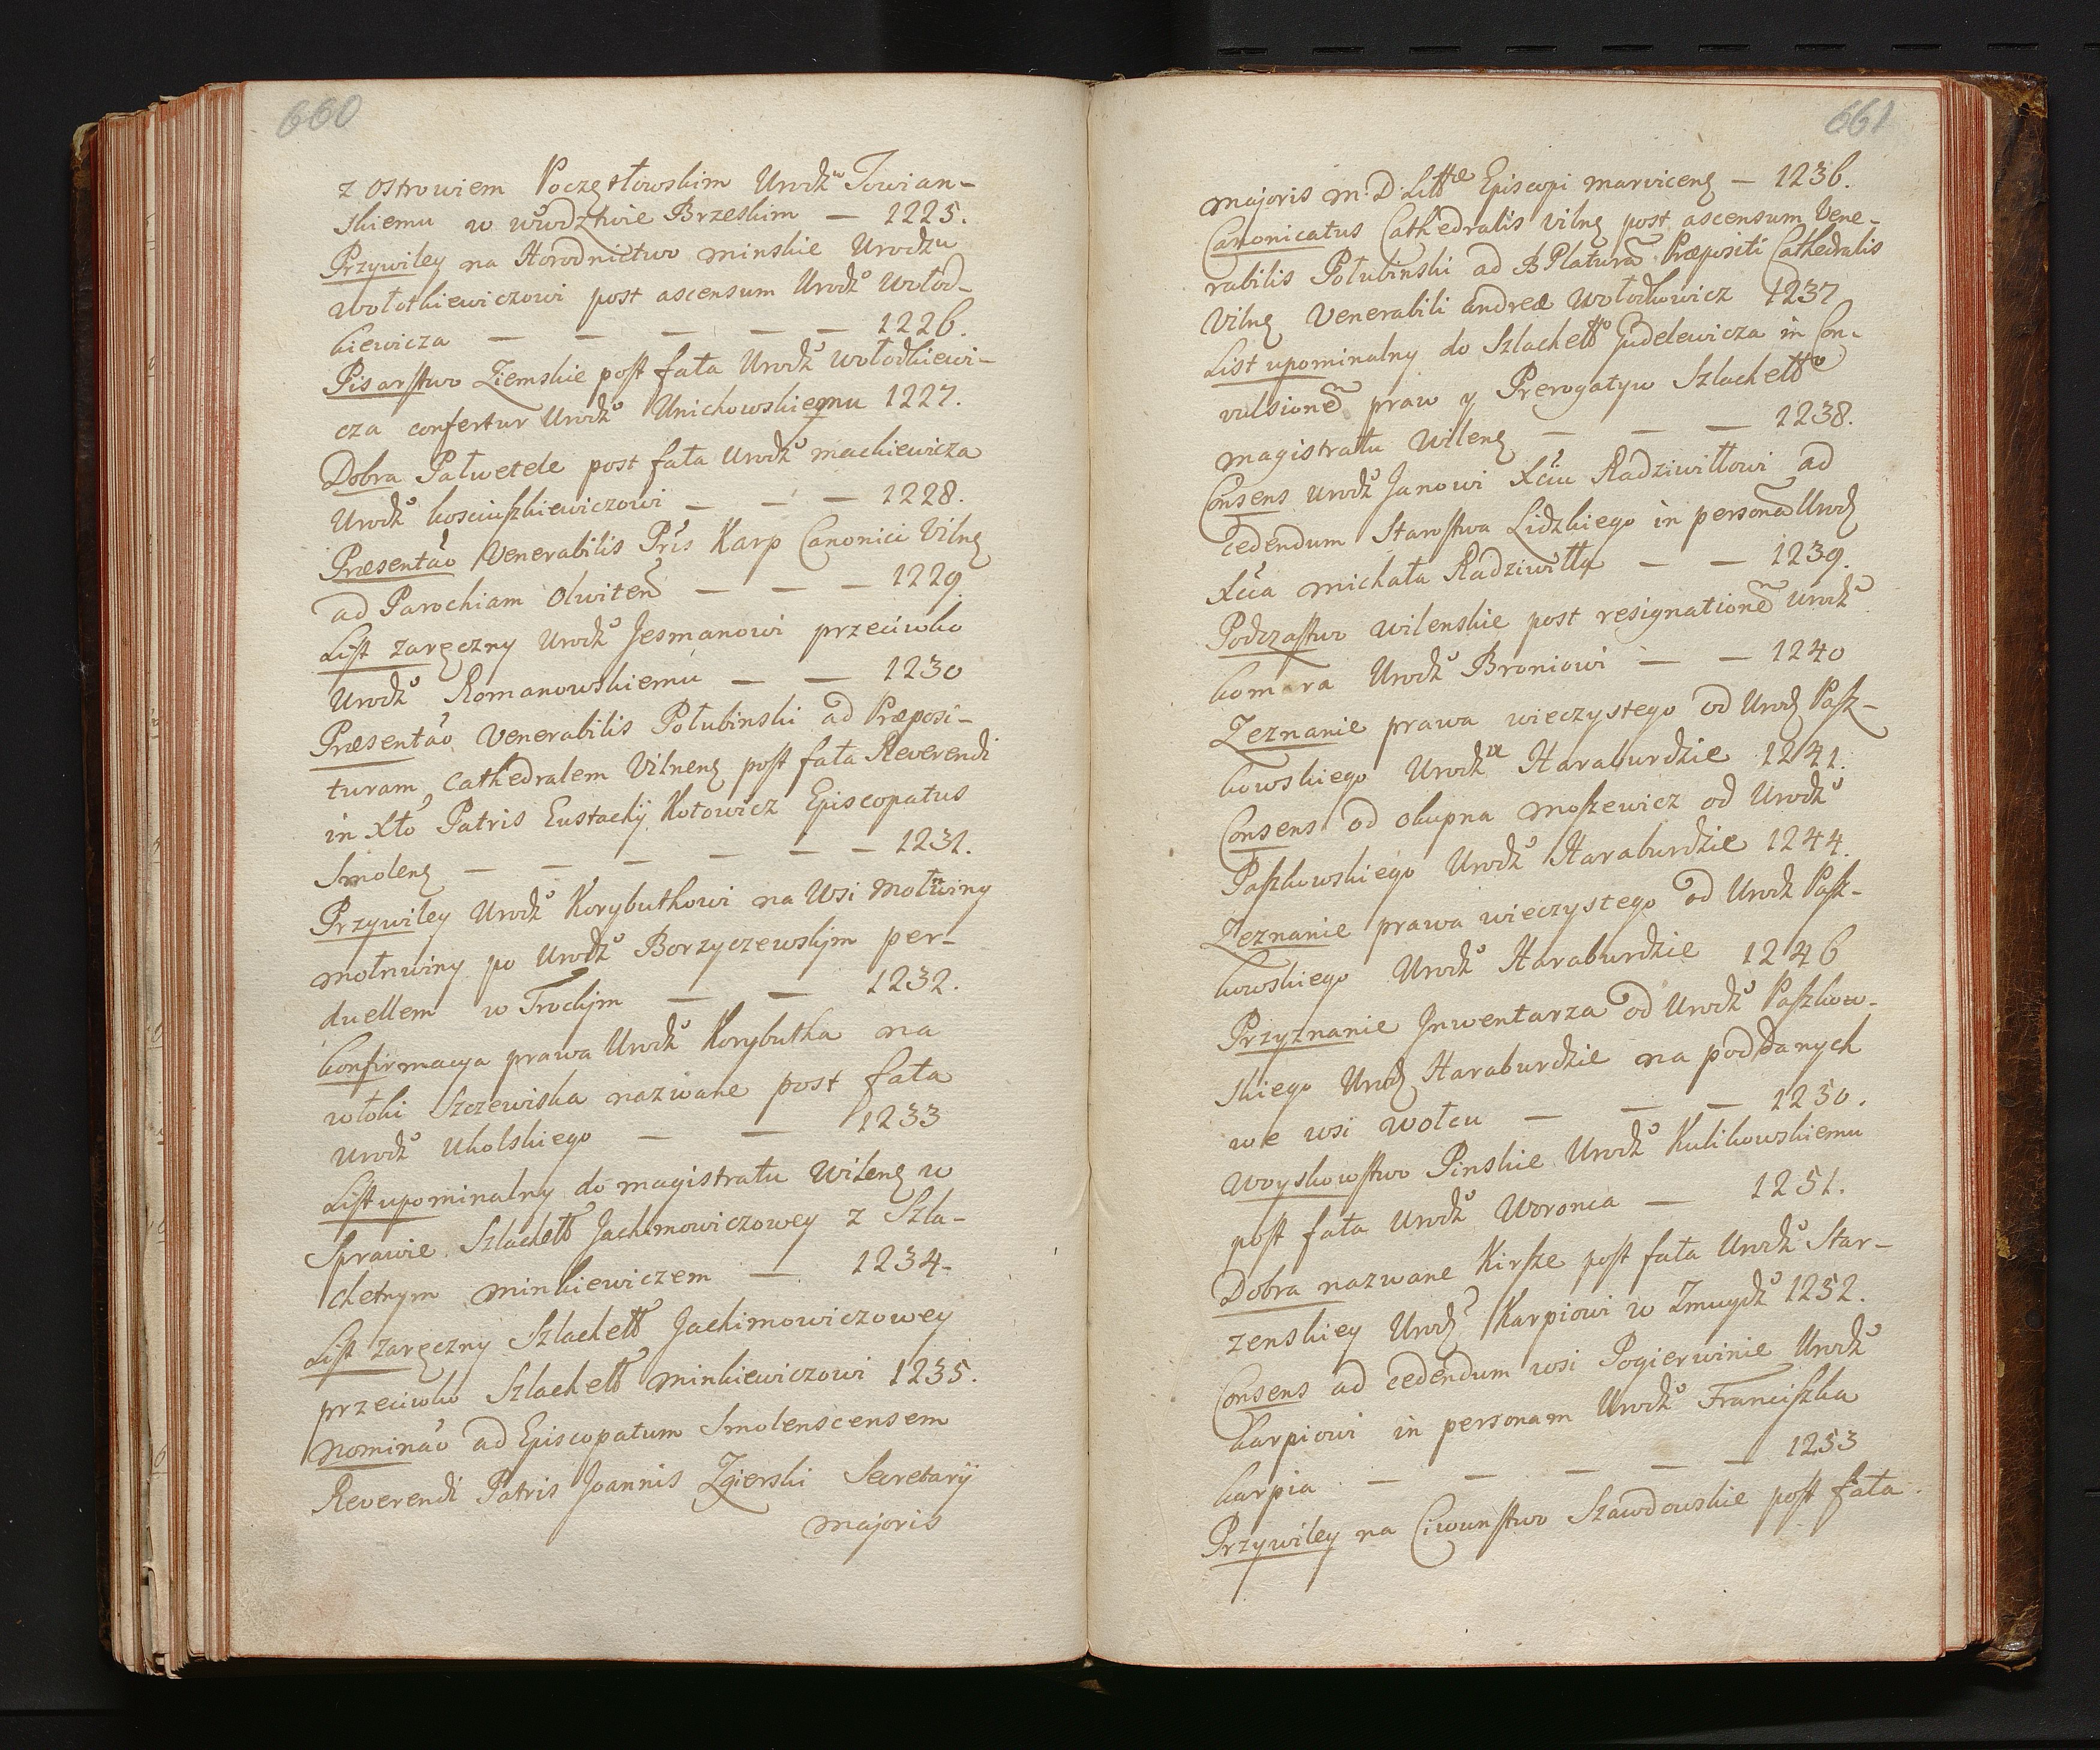 660
z Ostrowiem Poczęstowskim Urodzu Towian-
skiemu w wwdztwie Brzeskim — 1225.
Przywiley na Horodnictwo minskie Urodzu
Wołotkiewiczowi post ascensum Urodzo Wołod-
kiewicza — — — — — 1226.
Pisarstwo Ziemskie post fata Urodzo Wołodkiewi-
cza confertur Urodzo Unichowskiemu 1227.
Dobra Pałwetele post fata Urodzo mackiewicza
Urodzo kosciuszkiewiczowi — — — 1228.
Præsentao Venerabilis Pris Karp Canonici Vilnen
ad Parochiam Olwiten — — — 1229
List zaręczny Urodzo Jesmanowi przeciwko
Urodzo Romanowskiemu — — 1230
Præsentao Venerabilis Połubinski ad Præposi-
turam Cathedralem Vilnens post fata Reverendi
in Xto Patris Eustachij Kotowicz Episcopatus
Smolens — — — — — — 1231.
Przywiley Urodzo Korybuthowi na Wsi Mołnwiny
mołnwiny po Urodzo Borzyczewskim per-
duellem w Trockim — — 1232.
konfirmacya prawa Urodzo Korybutha na
włoki Szczewiska nazwane post fata
Urodzo Uholskiego — — 1233
List upominalny do magistratu Wilens w
Sprawie Szlachetto Jachimowiczowey z Szla-
chetnym minkiewiczem — 1234-
List zaręczny Szlachetto Jachimowiczowey
przeciwko Szlachetto minkiewiczowi 1235.
Nominao ad Episcopatum Smolenscensem
Reverendi Patris Joannis Zgierski Secretarij
majoris
661
majoris M. D. Littæ Episcopi marvicens — 1236.
Canonicatus Cathedralis Vilns post ascensum Vene-
rabilis Połubinski ad Præpositi Cathedralis
Vilns Venerabili Andreæ Wołodkowicz 1237
List upominalny do Szlachetto Judelewicza in Con-
vulsione praw y Prerogatyw Szlachetto
magistratu Wilens — — — 1238.
Consens Urodzo Janowi Xciu Radziwiłłowi ad
cedendum Starostwa Lidzkiego in persona Urodz
Xcia michała Radziwiłła — — 1239.
Podczastwo wilenskie post resignatione Urodzo
komara Urodzo Broniowi — — 1240
Zeznanie prawa wieczystego od Urodz Pasz-
kowskiego Urodz Haraburdzie 1241.
Consens od okupna moszewicz od Urodzo
Paszkowskiego Urodzo Haraburdzie 1244.
Zeznanie prawa wieczystego od Urodz Pasz-
kowskiego Urodzo Haraburdzie 1246
Przyznanie Jnwentarza od Urodzo Paszkow-
skiego Urodz Haraburdzie na poddanych
we wsi wołcu — — — 1250.
Woyskowstwo Pinskie Urodzo Kulikowskiemu
post fata Urodzo Woronca — 1251.
Dobra nazwane Kirsze post fata Urodzo Star-
zenskiey Urodzo Karpiowi w Zmuydz 1252.
Consens ad cedendum wsi Pogierwinie Urodzo
karpiowi in personam Urodzo Franciszka
karpia — — — — — 1253
Przywiley na Ciwunstwo Szawdowskie post fata